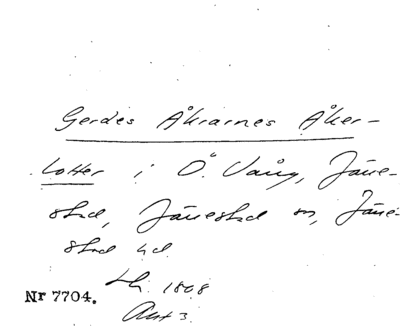 Gerdes Åkrarnes Åker-
lotter i Ö. Vång, Jäne-
stad, Jänestad sn, Jäne-
stad hd.
Lh. 1808
Nr 7704.
Akt 3.